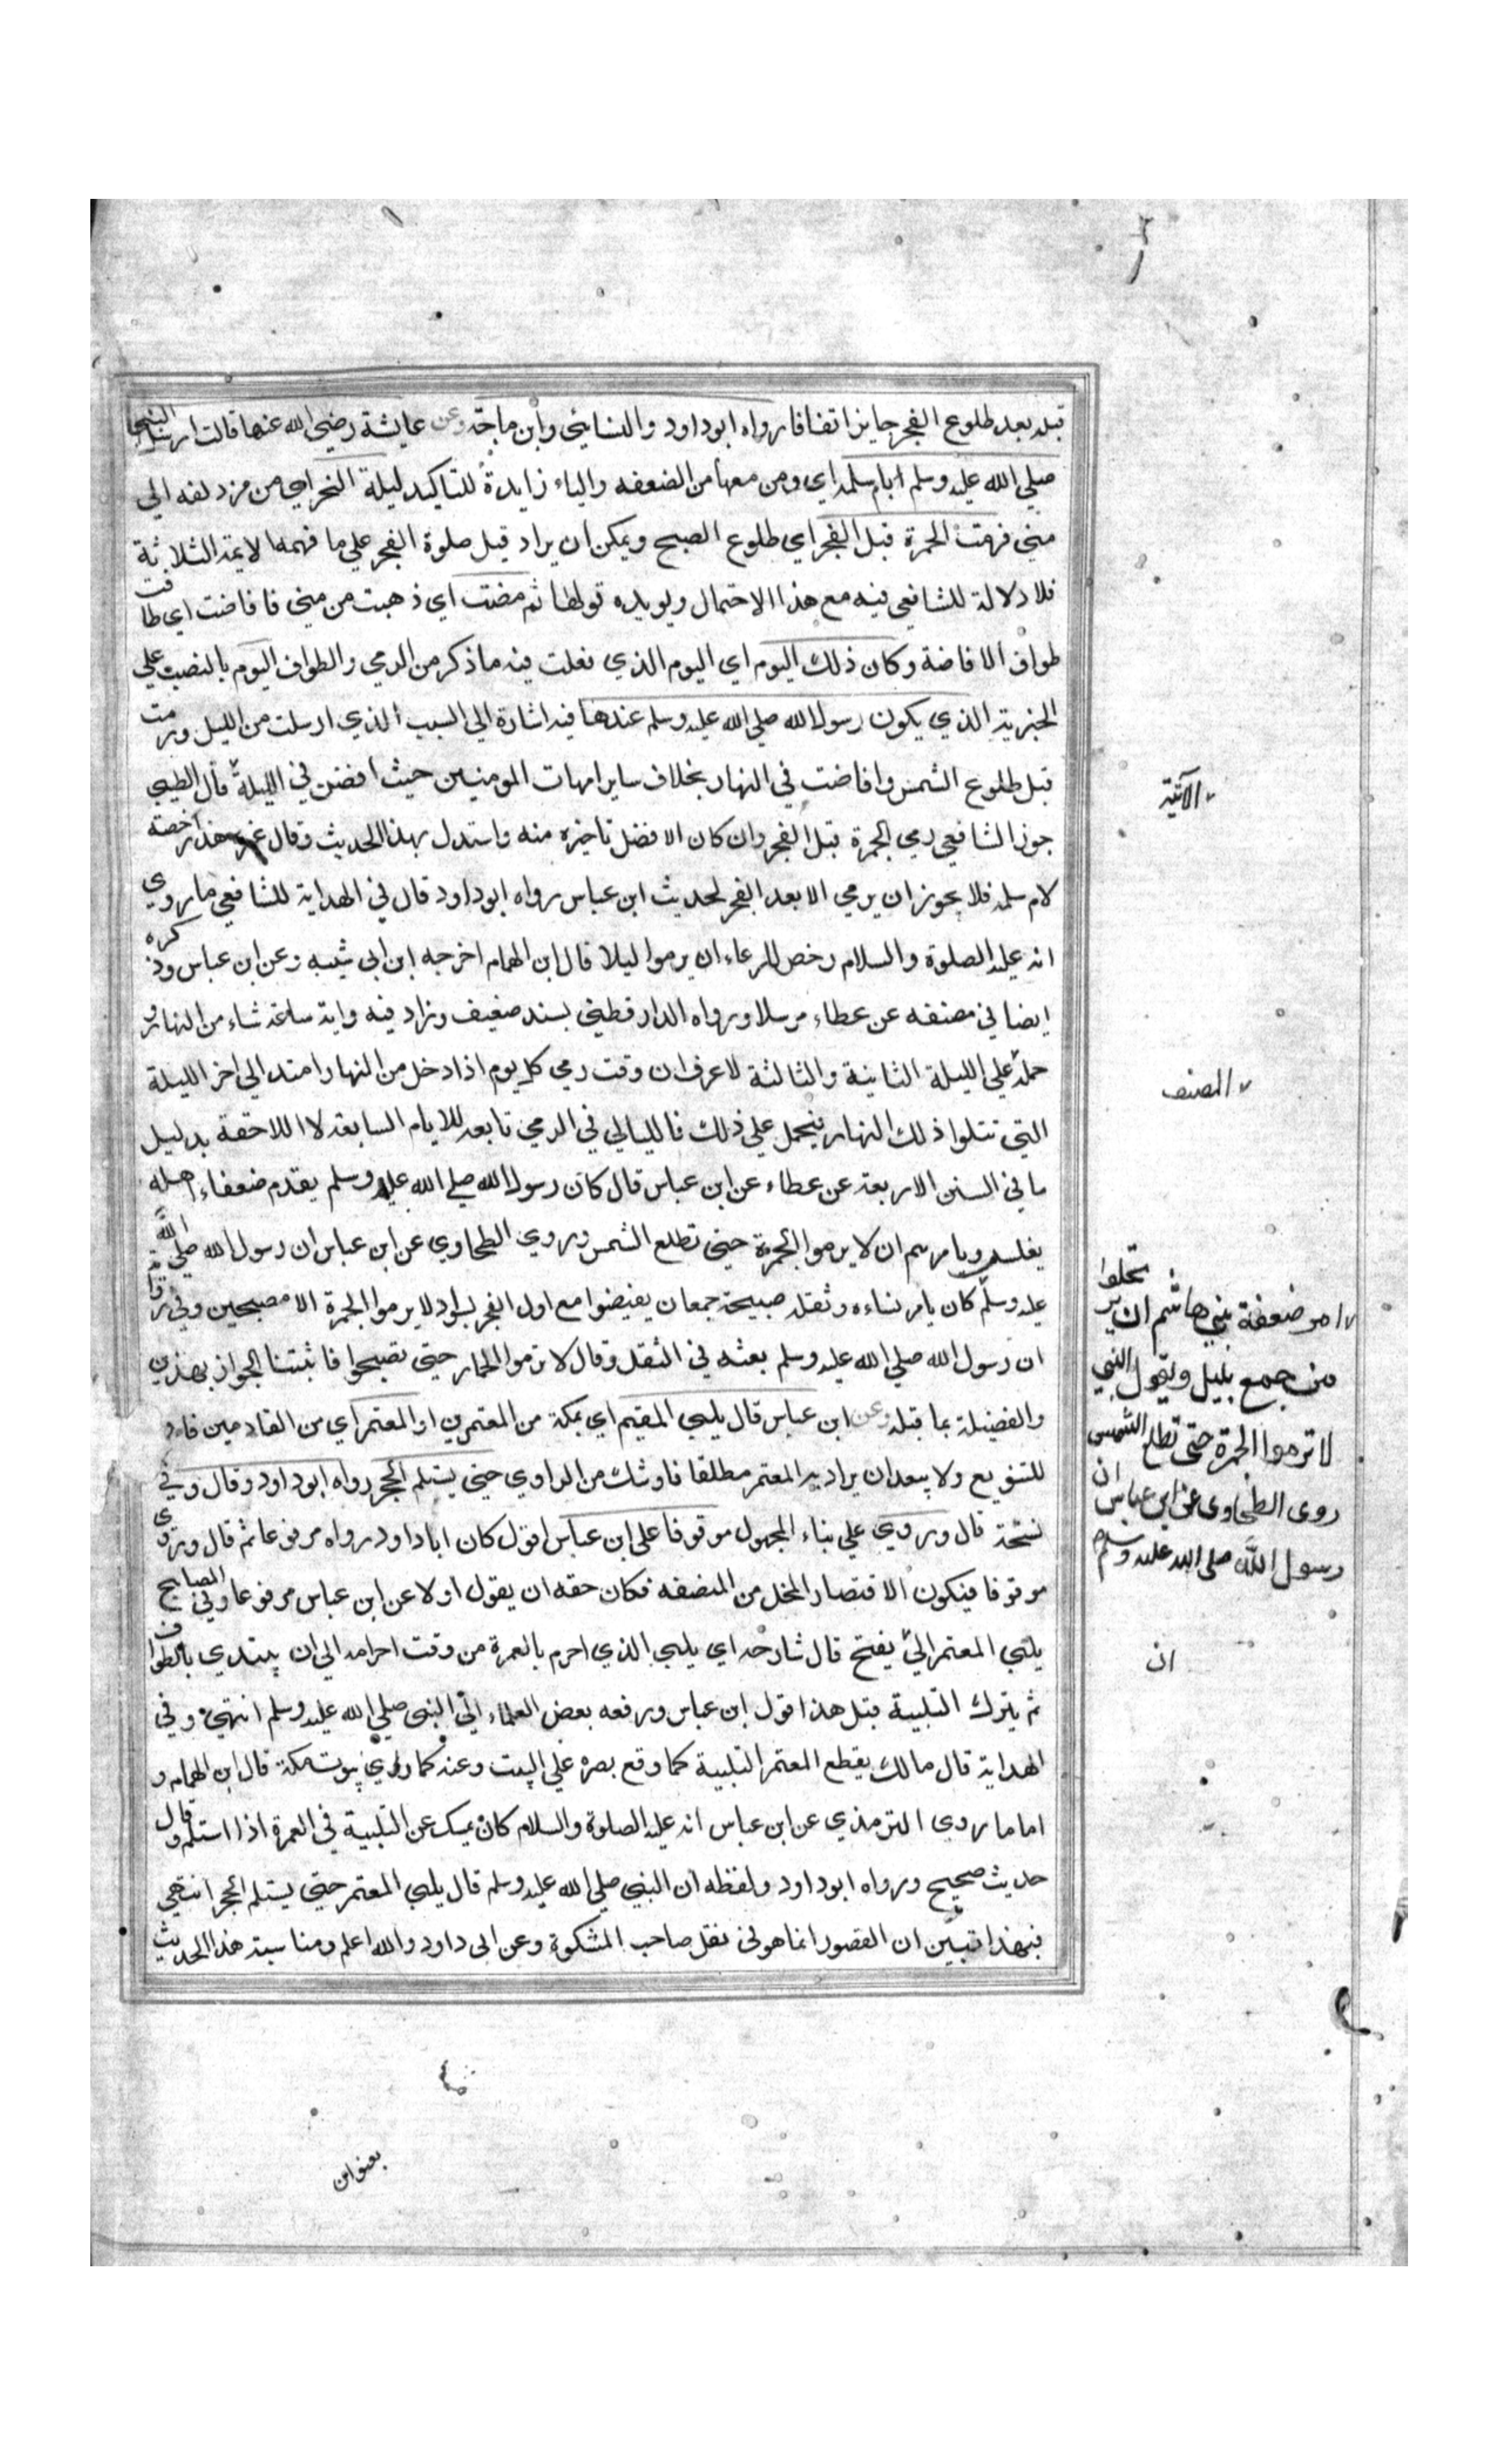 قبله بعد طلوع الفجر جايز اتفاقا رواه ابو داود والنسائي وابن ماجة وعن عايشة رضي الله عنها قالت ارسل النبي
صلي الله عليه وسلم ابام سلمه اي ومن معها من الضعفه والباء زايدة للتاكيد ليلة النحر اي من مزدلفه الي
مني فرمت الجمرة قبل الفجر اي طلوع الصبح ويمكن ان يراد قبل صلوة الفجر علي ما فهمه الايمة الثلاثة
فلا دلالة للشافعي فيه مع هذا الاحتمال ويويده قولها ثم مضت اي ذهبت من مني فافاضت اي طافت
طواف الافاضة وكان ذلك اليوم اي اليوم الذي فعلت فيه ما ذكر من الرمي والطواف اليوم بالنصب علي
الخبرية الذي يكون رسول الله صلي الله عليه وسلم عندها فيه اشارة الي السبب الذي ارسلت من الليل ورمت
قبل طلوع الشمس وافاضت في النهار بخلاف ساير امهات المومنين حيث افضن في الليلة قال الطيبي
الآتية
جوز الشافعي رمي الجمرة قبل الفجر وان كان الافضل تاخيره منه واستدل بهذا الحديث وقال غيره هذا رخصة
لام سلمه فلا يجوز ان يرمي الا بعد الفجر لحديث ابن عباس رواه ابو داود قال في الهداية للشافعي ما روي
انه عليه الصلوة والسلام رخص للرعاء ان يرموا ليلا قال ابن الهمام اخرجه ابن ابي شيبه وعن ابن عباس وذكره
ايضا في مصنفه عن عطاء مرسلا ورواه الدارقطني بسند ضعيف وزاد فيه واية ساعة شاء من النهار و
حمله علي الليلة الثانية والثالثة لا عرف ان وقت رمي كل يوم اذا دخل من النهار امتد الي اخر الليلة
المصنف
التي تتلوا ذلك النهار فيحمل علي ذلك فالليالي في الرمي تابعه للايام السابقه لا اللاحقة بدليل
ما في السنن الاربعة عن عطاء عن ابن عباس قال كان رسول الله صلي الله عليه وسلم يقدم ضعفاء اهله
بغلس ويامرهم ان لا يرموا الجمرة حتي تطلع الشمس وروي الطحاوي عن ابن عباس ان رسول الله صلي الله
عليه وسلم كان يامر نساءه وثقله صبيحة جمع ان يفيضوا مع اول الفجر بسواد لا يرموا الجمرة الا مصبحين وفي رواية
ان رسول الله صلي الله عليه وسلم بعثه في الثقل وقال لا ترموا الجمار حتي تصبحوا فاثبتنا الجواز بهذين
امر ضعفة بني هاشم ان يرتحلوا
من جمع بليل ويقول النبي
لا ترموا الجمرة حتى تطلع الشمس
روى الطحاوى عن ابن عباس ان
رسول الله صلى الله عليه وسلم
والفضيلة بما قبله وعن ابن عباس قال يلبي المقيم اي بمكة من المعتمرين او المعتمر اي من القادمين فاو
للتنويع ولا يبعد ان يراد به المعتمر مطلقا فاو شك من الراوي حتي يستلم الحجر رواه ابو داود وقال وفي
نسخة قال وروي علي بناء المجهول موقوفا على ابن عباس اقول كان ابا داود رواه مرفوعا ثم قال وروي
موقوفا فيكون الاقتصار المخل من المصنفه فكان حقه ان يقول اولا عن ابن عباس مرفوعا وفي المصابيح
يلبي المعتمر الي يفتح قال شارحه اي يلبي الذي احرم بالعمرة من وقت احرامه الي ان يبتدي بالطواف
ان
ثم يترك التلبية قبل هذا قول ابن عباس ورفعه بعض العلماء الي النبي صلي الله عليه وسلم انتهي وفي
الهداية قال مالك يقطع المعتمر التلبية كما وقع بصره علي البيت وعنه كما راي بيوت مكة قال ابن الهمام و
اما ما روي الترمذي عن ابن عباس انه عليه الصلوة والسلام كان يمسك عن التلبية في العمرة اذا استلم وقال
حديث صحيح ورواه ابو داود ولفظه ان النبي صلي الله عليه وسلم قال يلبي المعتمر حتي يستلم الحجر انتهي
فبهذا تبين ان القصور انما هو في نقل صاحب المشكوة وعن ابى داود والله اعلم ومناسبة هذا الحديث
بعنوان